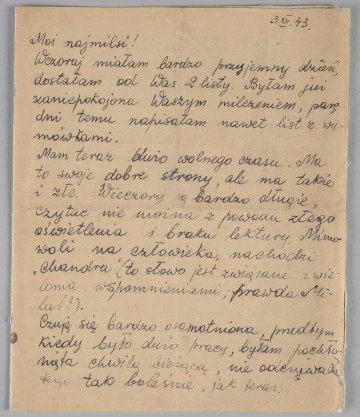 3 XII. 43.
Moi najmilsi!
Wczoraj miałam bardzo przyjemny dzień,
dostałam od Was 2 listy. Byłam już
zaniepokojona Waszym milczeniem, parę
dni temu napisałam nawet list z wy-
mówkami.
Mam teraz dużo wolnego czasu. Ma
to swoje dobre strony, ale ma takie
i złe. Wieczory są bardzo długie,
czytać nie można z powodu złego
oświetlenia i braku lektury. Mimo-
woli na człowieka nachodzi
"chandra" (to słowo jest związane z wie-
loma wspomnieniami, prawda Mi-
luś?).
Czuję się bardzo osamotniona, przedtym
kiedy było dużo pracy, byłam pochło-
nięta chwilą bieżącą, nie odczuwała
tego tak boleśnie, jak teraz.